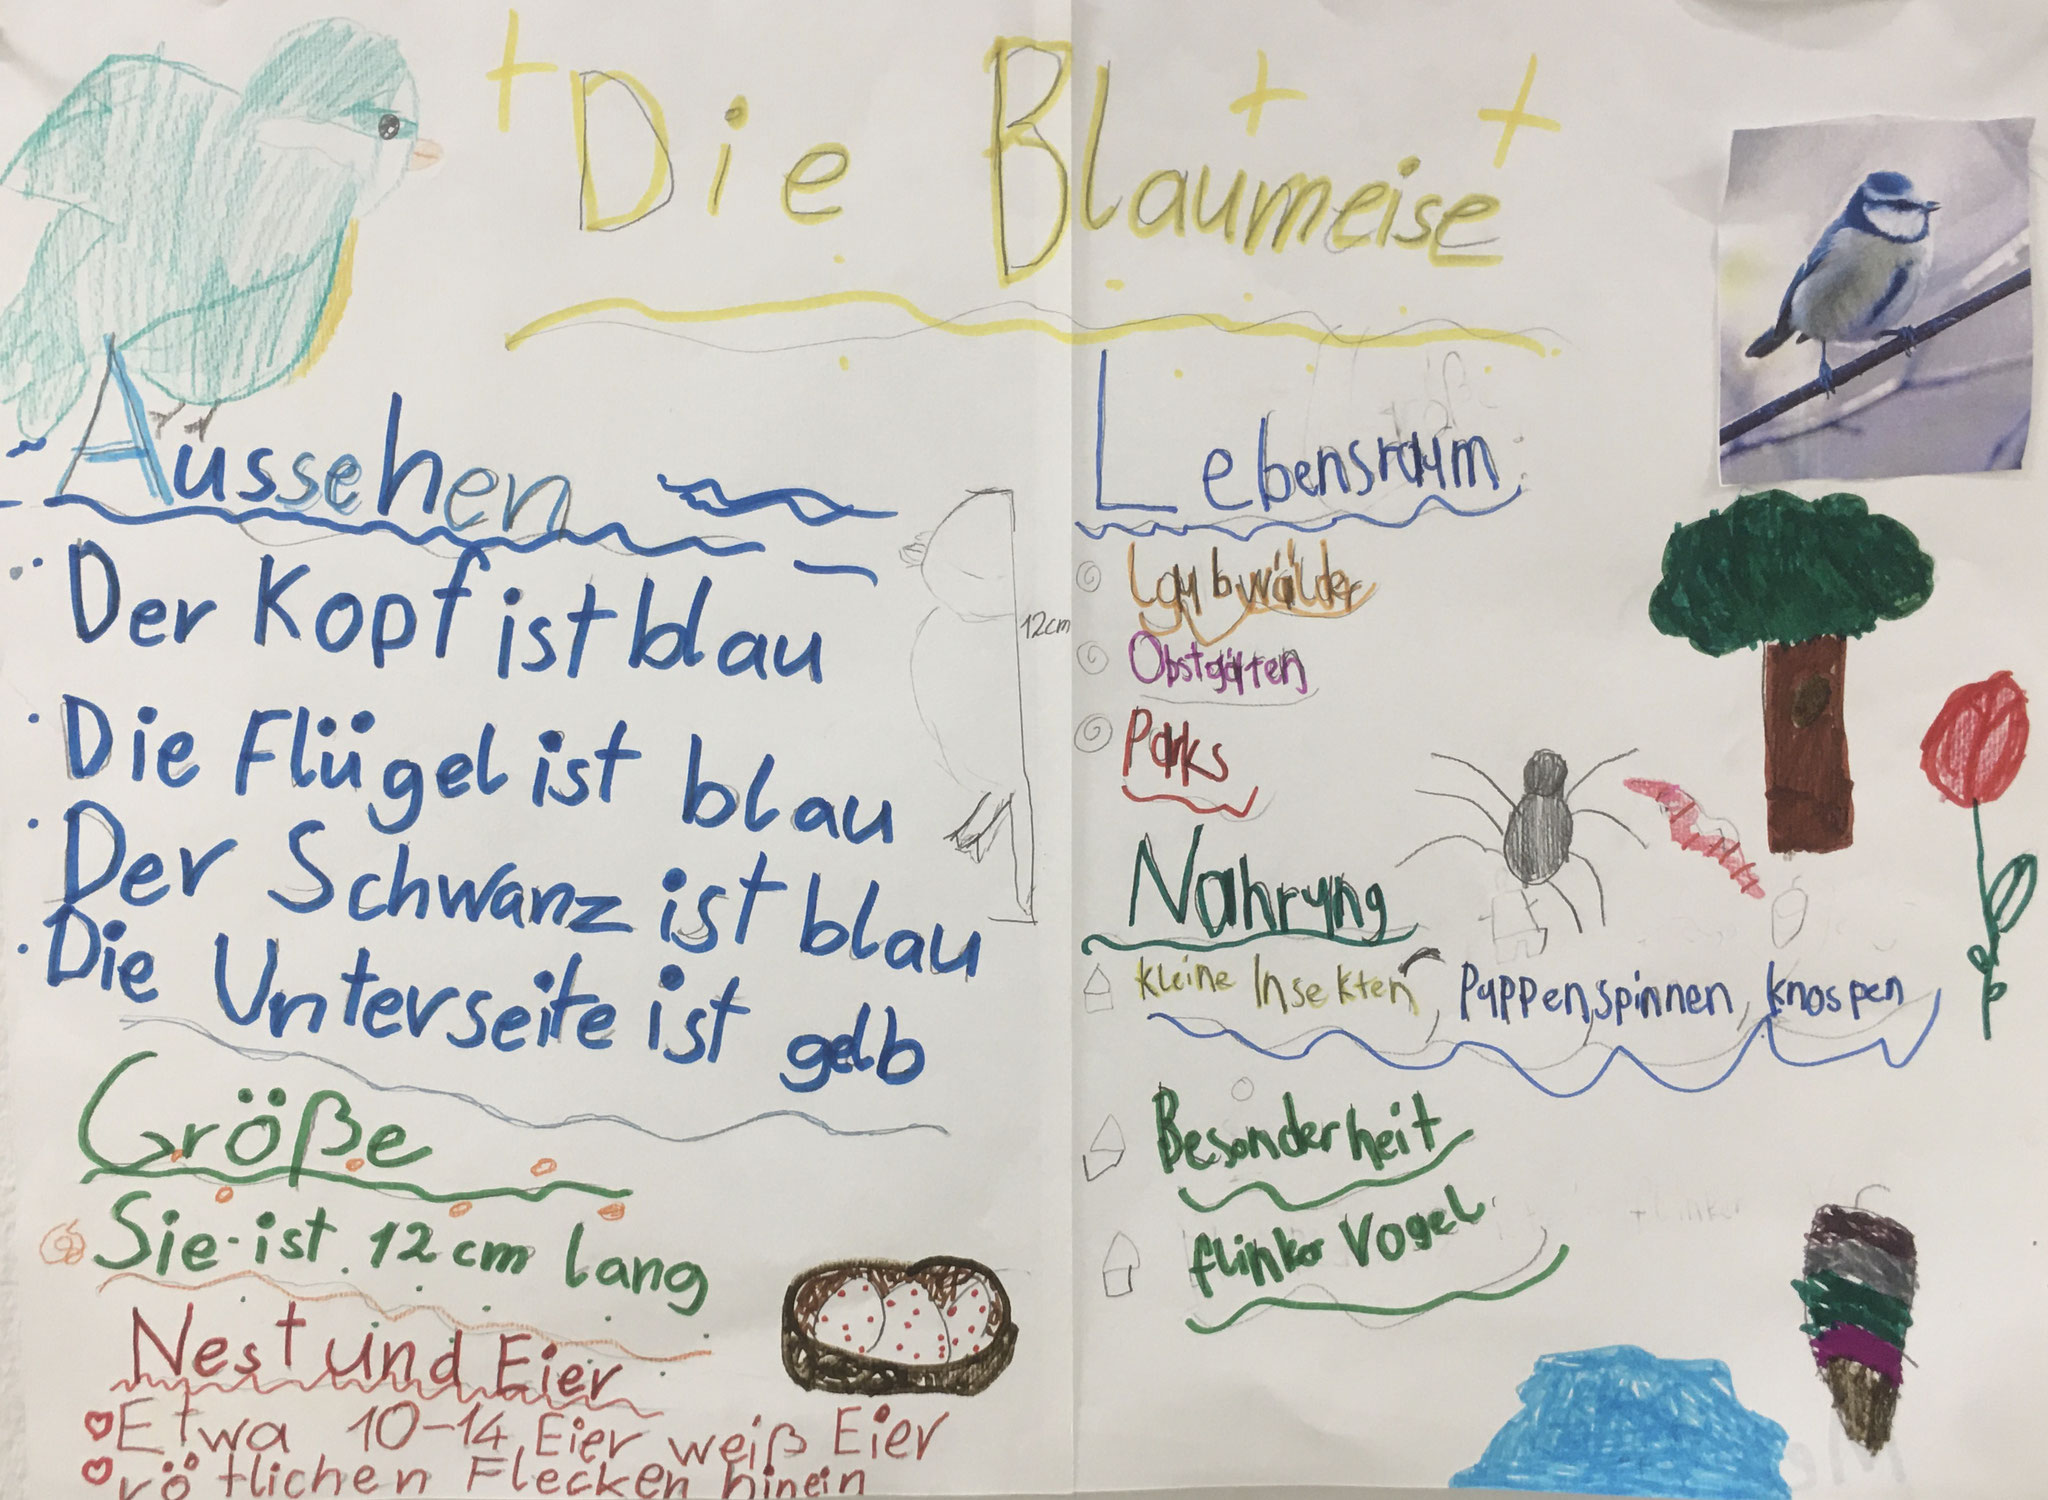 Die Blaumeise
Aussehen
Der Kopf ist blau
Die Flügel ist blau
Der Schwanz ist blau
Die Unterseite ist gelb
12cm
Größe
Sie ist 12 cm lang
Nest und Eier
Etwa 10-14 Eier weiß Eier
rötlichen Flecken hinein
Lebensraum
Laubwälder
Obstgärten
Parks
Nahrung
kleine Insekten, Puppen, spinnen, knospen
Besonderheit
flinker Vogel